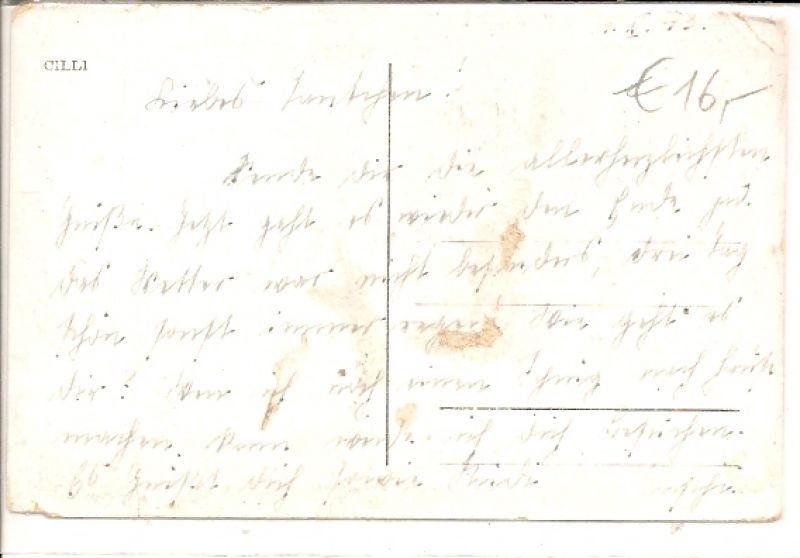 CILLI
€ 16,-
Liebes Tantchen!
Sende dir die allerherzlichsten
Grüße. Jetzt geht es wieder dem Ende zu.
Das Wetter war nicht besonders, drei Tag
schön sonst immer regen. Wie geht es
dir? Wen ich noch einen Sprung nach
machen kann werde ich dich besuchen.
Es grüßt dich sowie